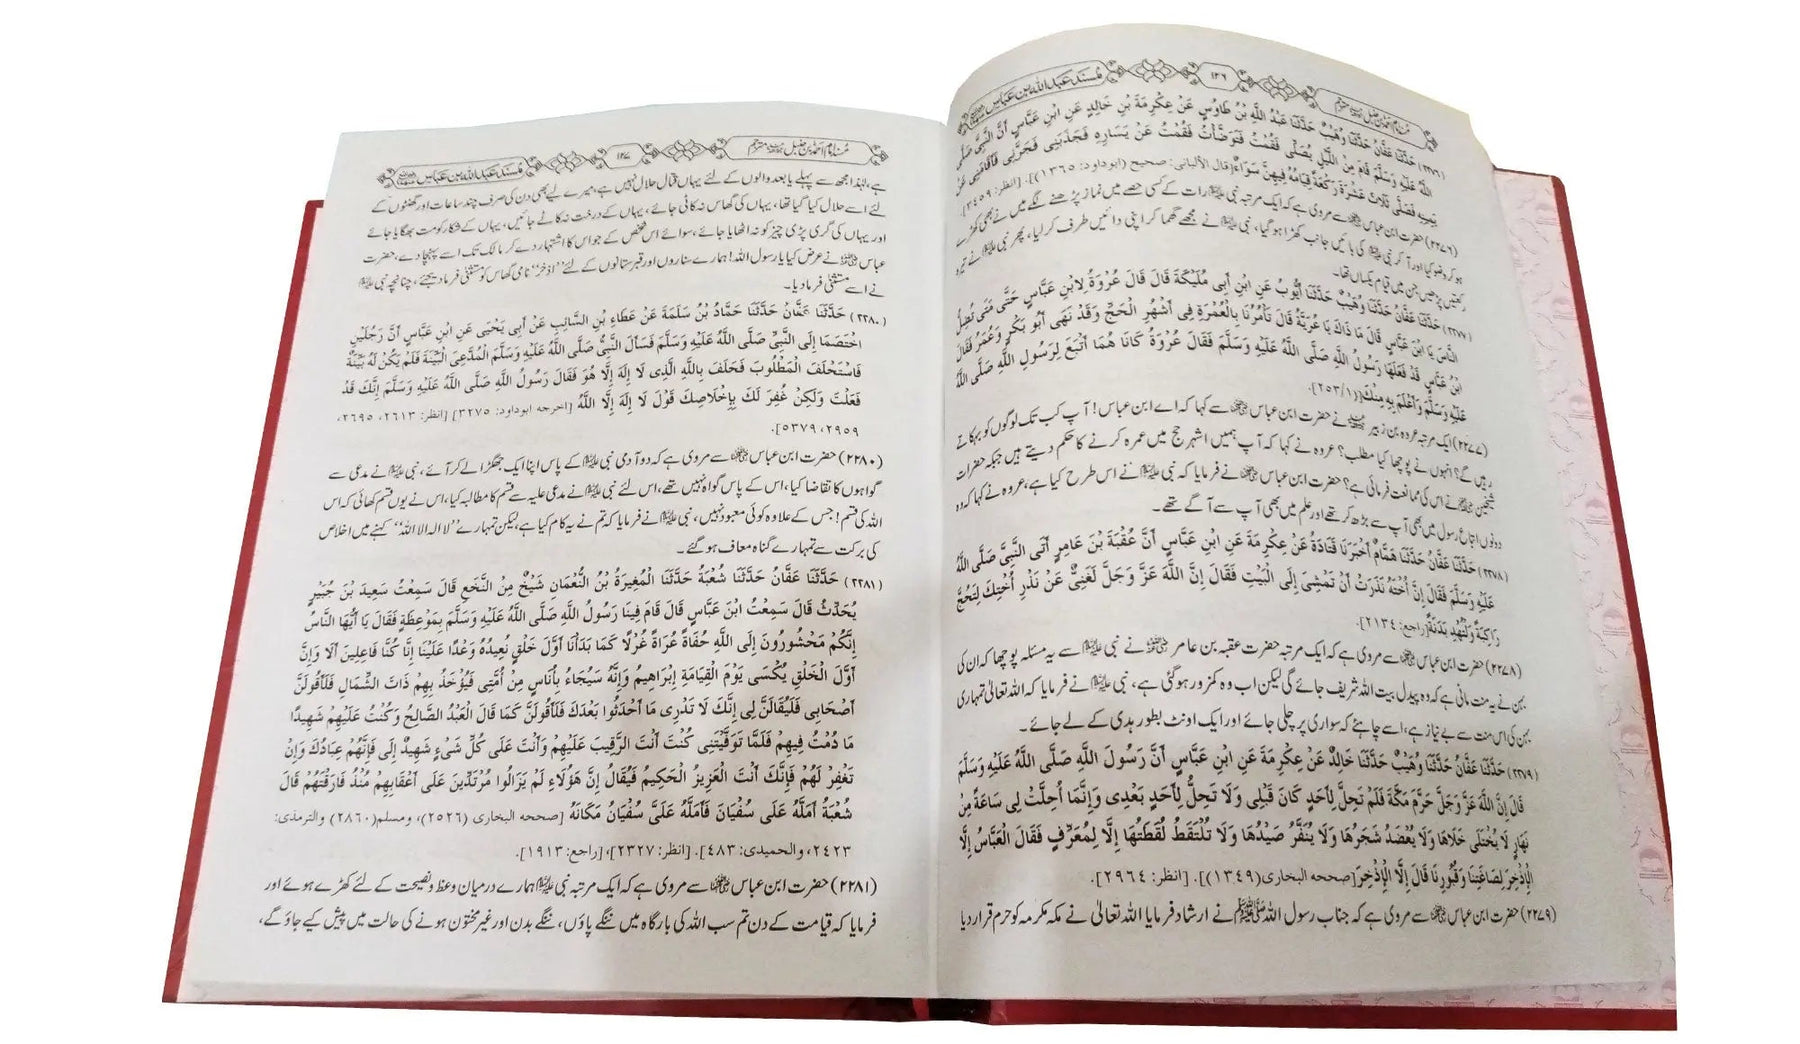 مُسنَد عَبد اللہ ابن عَبّاس
۱۲۶
مُسنَد امام احمد بن حنبل مترجم
(۲۲۷۶) حَدَّثَنَا عَفَّانُ حَدَّثَنَا وُهَيْبٌ حَدَّثَنَا عَبْدُ اللَّهِ بْنُ طَاوُسٍ عَنْ عِكْرِمَةَ بْنِ خَالِدٍ عَنِ ابْنِ عَبَّاسٍ أَنَّ النَّبِيَّ صَلَّى
اللَّهُ عَلَيْهِ وَسَلَّمَ قَامَ مِنَ اللَّيْلِ يُصَلِّي فَقُمْتُ فَتَوَضَّأْتُ فَقُمْتُ عَنْ يَسَارِهِ فَجَذَبَنِي فَجَرَّنِي فَأَقَامَنِي عَنْ
يَمِينِهِ فَصَلَّى ثَلَاثَ عَشْرَةَ رَكْعَةً قِيَامُهُ فِيهِنَّ سَوَاءٌ [قال الألباني: صحيح (ابوداود: ١٣٦٥)]. [انظر: ٣٤٥٩].
(۲۲۷۶) حضرت ابن عباس ؓ سے مروی ہے کہ ایک مرتبہ نبی ﷺ رات کے کسی حصے میں نماز پڑھنے لگے میں نے بھی کھڑے
ہو کر وضو کیا اور آ کر نبی ﷺ کی بائیں جانب کھڑا ہو گیا، نبی ﷺ نے مجھے گھما کر اپنی دائیں طرف کر لیا، پھر نبی ﷺ نے تیرہ
رکعتیں پڑھیں جن میں قیام یکساں تھا۔
(۲۲۷۷) حَدَّثَنَا عَفَّانُ حَدَّثَنَا وُهَيْبٌ حَدَّثَنَا أَيُّوبُ عَنِ ابْنِ أَبِي مُلَيْكَةَ قَالَ قَالَ عُرْوَةُ لِابْنِ عَبَّاسٍ حَتَّى مَتَى تُضِلُّ
النَّاسَ يَا ابْنَ عَبَّاسٍ قَالَ مَا ذَاكَ يَا عُرَيَّةُ قَالَ تَأْمُرُنَا بِالْعُمْرَةِ فِي أَشْهُرِ الْحَجِّ وَقَدْ نَهَى أَبُو بَكْرٍ وَعُمَرُ فَقَالَ
ابْنُ عَبَّاسٍ قَدْ فَعَلَهَا رَسُولُ اللَّهِ صَلَّى اللَّهُ عَلَيْهِ وَسَلَّمَ فَقَالَ عُرْوَةُ كَانَا هُمَا أَتْبَعَ لِرَسُولِ اللَّهِ صَلَّى اللَّهُ
عَلَيْهِ وَسَلَّمَ وَأَعْلَمَ بِهِ مِنْكَ [(٢٥٣/١].
(۲۲۷۷) ایک مرتبہ عروہ بن زبیر نے حضرت ابن عباس ؓ سے کہا کہ اے ابن عباس! آپ کب تک لوگوں کو بہکاتے
رہیں گے؟ انہوں نے پوچھا کیا مطلب؟ عروہ نے کہا کہ آپ ہمیں اشہر حج میں عمرہ کرنے کا حکم دیتے ہیں جبکہ حضرات
شیخین نے اس کی ممانعت فرمائی ہے؟ حضرت ابن عباس ؓ نے فرمایا کہ نبی ﷺ نے اس طرح کیا ہے، عروہ نے کہا کہ وہ
دونوں اتباع رسول میں بھی آپ سے بڑھ کر تھے اور علم میں بھی آپ سے آگے تھے۔
(۲۲۷۸) حَدَّثَنَا عَفَّانُ حَدَّثَنَا هَمَّامٌ أَخْبَرَنَا قَتَادَةُ عَنْ عِكْرِمَةَ عَنِ ابْنِ عَبَّاسٍ أَنَّ عُقْبَةَ بْنَ عَامِرٍ أَتَى النَّبِيَّ صَلَّى اللَّهُ
عَلَيْهِ وَسَلَّمَ فَقَالَ إِنَّ أُخْتَهُ نَذَرَتْ أَنْ تَمْشِيَ إِلَى الْبَيْتِ فَقَالَ إِنَّ اللَّهَ عَزَّ وَجَلَّ لَغَنِيٌّ عَنْ نَذْرِ أُخْتِكَ لِتَحُجَّ
رَاكِبَةً وَلْتُهْدِ بَدَنَةً [راجع: ٢١٣٤].
(۲۲۷۸) حضرت ابن عباس ؓ سے مروی ہے کہ ایک مرتبہ حضرت عقبہ بن عامر ؓ نے نبی ﷺ سے یہ مسئلہ پوچھا کہ ان کی
بہن نے یہ منت مانی ہے کہ وہ پیدل بیت اللہ شریف جائے گی لیکن اب وہ کمزور ہو گئی ہے، نبی ﷺ نے فرمایا کہ اللہ تعالیٰ تمہاری
بہن کی اس منت سے بے نیاز ہے، اسے چاہئے کہ سواری پر چلی جائے اور ایک اونٹ بطور ہدی کے لے جائے۔
(۲۲۷۹) حَدَّثَنَا عَفَّانُ حَدَّثَنَا وُهَيْبٌ حَدَّثَنَا خَالِدٌ عَنْ عِكْرِمَةَ عَنِ ابْنِ عَبَّاسٍ أَنَّ رَسُولَ اللَّهِ صَلَّى اللَّهُ عَلَيْهِ وَسَلَّمَ
قَالَ إِنَّ اللَّهَ عَزَّ وَجَلَّ حَرَّمَ مَكَّةَ فَلَمْ تَحِلَّ لِأَحَدٍ كَانَ قَبْلِي وَلَا تَحِلُّ لِأَحَدٍ بَعْدِي وَإِنَّمَا أُحِلَّتْ لِي سَاعَةً مِنْ
نَهَارٍ لَا يُخْتَلَى خَلَاهَا وَلَا يُعْضَدُ شَجَرُهَا وَلَا يُنَفَّرُ صَيْدُهَا وَلَا تُلْتَقَطُ لُقَطَتُهَا إِلَّا لِمُعَرِّفٍ فَقَالَ الْعَبَّاسُ إِلَّا
الْإِذْخِرَ لِصَاغَتِنَا وَقُبُورِنَا قَالَ إِلَّا الْإِذْخِرَ [صححه البخاري (١٣٤٩)]. [انظر: ٢٩٦٤].
(۲۲۷۹) حضرت ابن عباس ؓ سے مروی ہے کہ جناب رسول اللہ ﷺ نے ارشاد فرمایا اللہ تعالیٰ نے مکہ مکرمہ کو حرم قرار دیا
مُسنَد امام احمد بن حنبل مترجم
۱۲۷
مُسنَد عَبد اللہ ابن عَبّاس
ہے، لہٰذا مجھ سے پہلے یا بعد والوں کے لئے یہاں قتال حلال نہیں ہے، میرے لیے بھی دن کی صرف چند ساعات اور گھنٹوں کے
لئے اسے حلال کیا گیا تھا، یہاں کی گھاس نہ کاٹی جائے، یہاں کے درخت نہ کاٹے جائیں، یہاں کے شکار کو مت بھگایا جائے
اور یہاں کی گری پڑی چیز کو نہ اٹھایا جائے، سوائے اس شخص کے جو اس کا اشتہار دے کر مالک تک اسے پہنچا دے، حضرت
عباس ؓ نے عرض کیا یا رسول اللہ! ہمارے سناروں اور قبرستانوں کے لئے "اذخر" نامی گھاس کو مستثنیٰ فرما دیجئے، چنانچہ نبی ﷺ
نے اسے مستثنیٰ فرما دیا۔
(۲۲۸۰) حَدَّثَنَا عَفَّانُ حَدَّثَنَا حَمَّادُ بْنُ سَلَمَةَ عَنْ عَطَاءِ بْنِ السَّائِبِ عَنْ أَبِي يَحْيَى عَنِ ابْنِ عَبَّاسٍ أَنَّ رَجُلَيْنِ
اخْتَصَمَا إِلَى النَّبِيِّ صَلَّى اللَّهُ عَلَيْهِ وَسَلَّمَ فَسَأَلَ النَّبِيُّ صَلَّى اللَّهُ عَلَيْهِ وَسَلَّمَ الْمُدَّعِيَ الْبَيِّنَةَ فَلَمْ يَكُنْ لَهُ بَيِّنَةٌ
فَاسْتَحْلَفَ الْمَطْلُوبَ فَحَلَفَ بِاللَّهِ الَّذِي لَا إِلَهَ إِلَّا هُوَ فَقَالَ رَسُولُ اللَّهِ صَلَّى اللَّهُ عَلَيْهِ وَسَلَّمَ إِنَّكَ قَدْ
فَعَلْتَ وَلَكِنْ غُفِرَ لَكَ بِإِخْلَاصِكَ قَوْلَ لَا إِلَهَ إِلَّا اللَّهُ [اخرجه ابوداود: ٣٢٧٥] [انظر: ٢٦١٣، ٢٦٩٥،
٢٩٥٩، ٥٣٧٩].
(۲۲۸۰) حضرت ابن عباس ؓ سے مروی ہے کہ دو آدمی نبی ﷺ کے پاس اپنا ایک جھگڑا لے کر آئے، نبی ﷺ نے مدعی سے
گواہوں کا تقاضا کیا، اس کے پاس گواہ نہیں تھے، اس لئے نبی ﷺ نے مدعی علیہ سے قسم کا مطالبہ کیا، اس نے یوں قسم کھائی کہ اس
اللہ کی قسم! جس کے علاوہ کوئی معبود نہیں، نبی ﷺ نے فرمایا کہ تم نے یہ کام کیا ہے، لیکن تمہارے "لا الہ الا اللہ" کہنے میں اخلاص
کی برکت سے تمہارے گناہ معاف ہو گئے۔
(۲۲۸۱) حَدَّثَنَا عَفَّانُ حَدَّثَنَا شُعْبَةُ حَدَّثَنَا الْمُغِيرَةُ بْنُ النُّعْمَانِ شَيْخٌ مِنْ النَّخَعِ قَالَ سَمِعْتُ سَعِيدَ بْنَ جُبَيْرٍ
يُحَدِّثُ قَالَ سَمِعْتُ ابْنَ عَبَّاسٍ قَالَ قَامَ فِينَا رَسُولُ اللَّهِ صَلَّى اللَّهُ عَلَيْهِ وَسَلَّمَ بِمَوْعِظَةٍ فَقَالَ يَا أَيُّهَا النَّاسُ
إِنَّكُمْ مَحْشُورُونَ إِلَى اللَّهِ حُفَاةً عُرَاةً غُرْلًا كَمَا بَدَأْنَا أَوَّلَ خَلْقٍ نُعِيدُهُ وَعْدًا عَلَيْنَا إِنَّا كُنَّا فَاعِلِينَ أَلَا وَإِنَّ
أَوَّلَ الْخَلْقِ يُكْسَى يَوْمَ الْقِيَامَةِ إِبْرَاهِيمُ وَإِنَّهُ سَيُجَاءُ بِأُنَاسٍ مِنْ أُمَّتِي فَيُؤْخَذُ بِهِمْ ذَاتَ الشِّمَالِ فَلَأَقُولَنَّ
أَصْحَابِي فَلَيُقَالَنَّ لِي إِنَّكَ لَا تَدْرِي مَا أَحْدَثُوا بَعْدَكَ فَلَأَقُولَنَّ كَمَا قَالَ الْعَبْدُ الصَّالِحُ وَكُنْتُ عَلَيْهِمْ شَهِيدًا
مَا دُمْتُ فِيهِمْ فَلَمَّا تَوَفَّيْتَنِي كُنْتَ أَنْتَ الرَّقِيبَ عَلَيْهِمْ وَأَنْتَ عَلَى كُلِّ شَيْءٍ شَهِيدٌ إِلَى فَإِنَّهُمْ عِبَادُكَ وَإِنْ
تَغْفِرْ لَهُمْ فَإِنَّكَ أَنْتَ الْعَزِيزُ الْحَكِيمُ فَيُقَالُ إِنَّ هَؤُلَاءِ لَمْ يَزَالُوا مُرْتَدِّينَ عَلَى أَعْقَابِهِمْ مُنْذُ فَارَقْتَهُمْ قَالَ
شُعْبَةُ أَمَلَّهُ عَلَى سُفْيَانَ فَأَمَلَّهُ عَلَيَّ سُفْيَانُ مَكَانَهُ [صححه البخاري (٢٥٢٦)، ومسلم (٢٨٦٠) والترمذي:
٢٤٢٣، والحميدي: ٤٨٣]. [انظر: ٢٣٢٧]، [راجع: ١٩١٣].
(۲۲۸۱) حضرت ابن عباس ؓ سے مروی ہے کہ ایک مرتبہ نبی ﷺ ہمارے درمیان وعظ و نصیحت کے لئے کھڑے ہوئے اور
فرمایا کہ قیامت کے دن تم سب اللہ کی بارگاہ میں ننگے پاؤں، ننگے بدن اور غیر مختون ہونے کی حالت میں پیش کیے جاؤ گے،